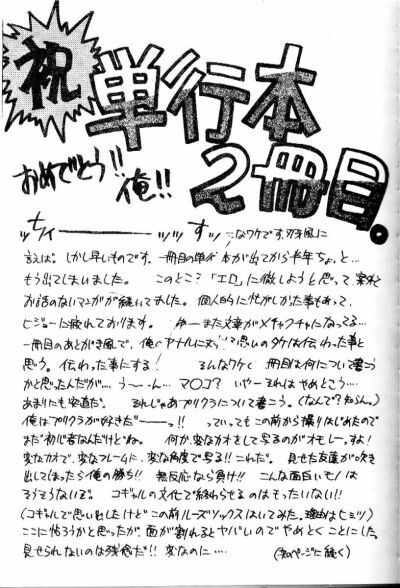 祝
単行本
2冊目。
おめでとう!! 俺!!
っちィーーーーッッッすッ
なワケです。
言えば。しかし早いものです。一冊目の単行本が出てから半年ちょっと…
もう出てしまいました。このところ「エロ」に徹しようと思って、案外
お話のないマンガが続いてました。個人的に忙しかった事もあって、
ヒジョーに疲れております。ゆーまた文章がメチャクチャになってる…
一冊目のあとがき風で、俺のアナルに対する思いのタケは伝わった事と
思う。伝わった事にする! そんなワケで 冊目は何について書こう
かと思ったんだが…. うー…ん… マ〇コ? いやーそれはやめとこう…
あまりにも安直だ。それじゃあプリクラについて書こう。(なんで?知らん。)
俺はプリクラが好きだーーっ!! っていってもこの前から撮りはじめたので
まだ初心者なんだけどね。何か、変なカオをして写るのがオモレーっすよ!
変なカオで、変なフレームに、変な角度で写る!! これだ。見せた友達が吹き
出してしまったら俺の勝ち!! 無反応なら負け!! こんな面白いモノは
そうそうないぞ。コギャルの文化で終わらせるのはもったいない!!
(コギャルで思い出したけどこの前ルーズソックスはいてみた。理由はヒミツ)
ここに貼ろうかと思ったが、面が割れるとヤバいのでやめとくことにした。
見せられないのは残念だ!! 変なのに…. (次のページに続く)